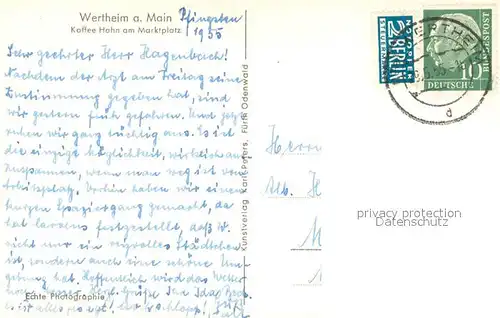 Wertheim a. Main
Kaffee Hahn am Marktplatz
Pfingsten
1955
Sehr geehrter Herr Hagenbach!
Nachdem der Arzt am Freitag seine
Zustimmung gegeben hat, sind
wir gestern früh gefahren. Und jetzt
ruhen wir ganz tüchtig aus. Es ist
die einzige Möglichkeit, wirklich aus-
zuspannen, wenn man weg ist vom
Arbeitsplatz. Vorhin haben wir einen
kurzen Spaziergang gemacht, da
hat festgestellt, daß W.
nicht nur ein reizvolles Städtchen
ist, sondern auch eine schöne Um-
gebung hat. Hoffentlich wird das Wetter
Grüße Ihr
ist alles
Echte Photographie
Kunstverlag Karl Peters, Fürth Odenwald
NOTOPFER
2 BERLIN
STEUERMARKE
DEUTSCHE
BUNDESPOST
10
WERTHEIM
d
Herrn
H
privacy protection
Datenschutz